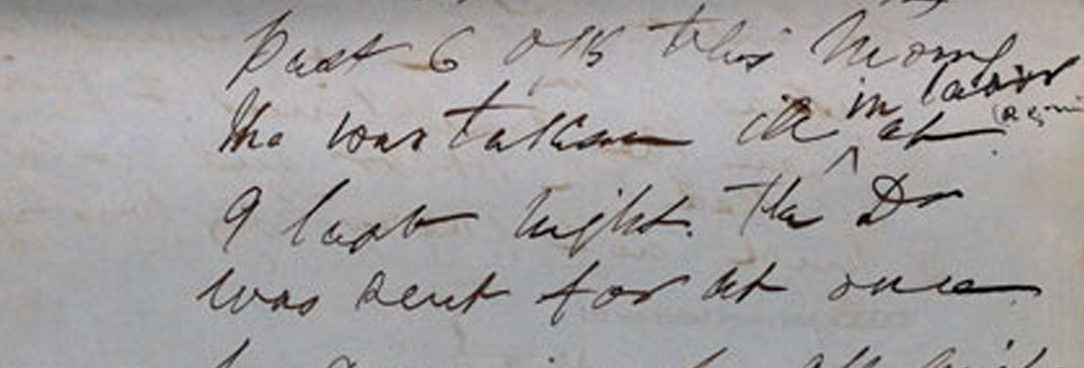 past 6 Olk this Morng
She was taken ill in labor at
9 last night. The Dr
was sent for at once